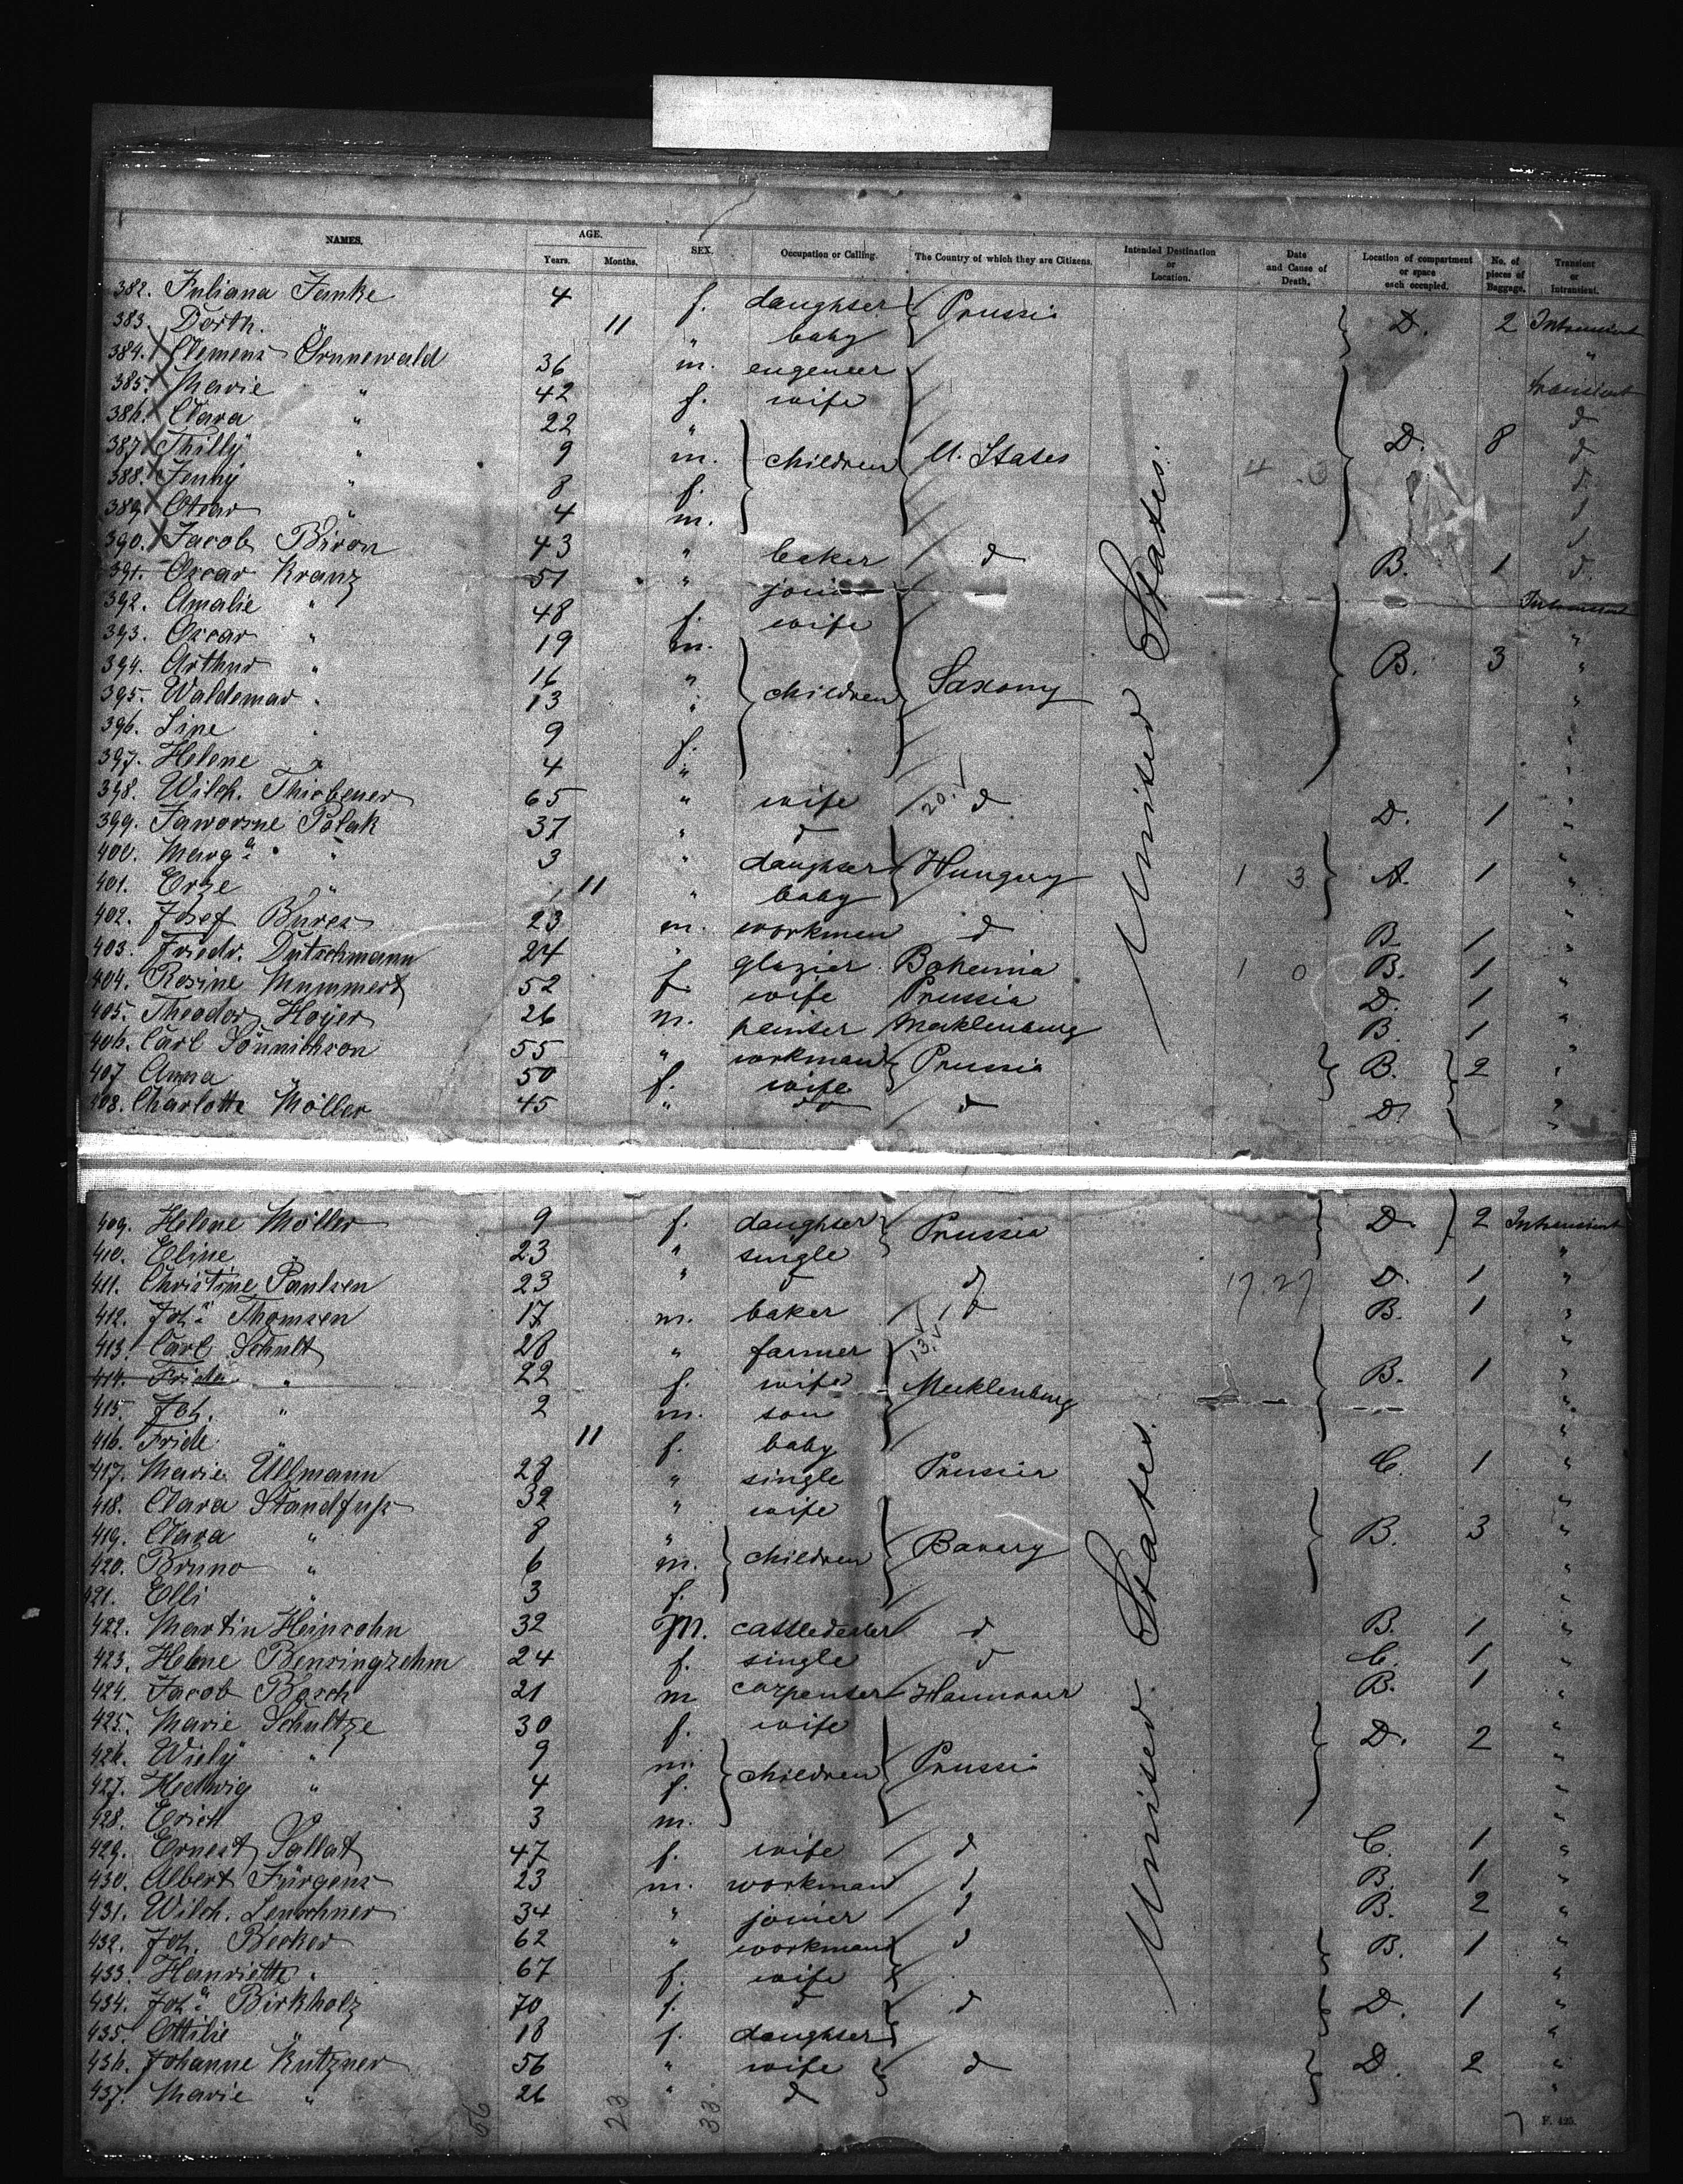 NAMES. AGE. Years. Months. SEX. Occupation or Calling. The Country of which they are Citizens. Intended Destination or Location. Date and Cause of Death. Location of compartment or space each occupied. No. of pieces of Baggage. Transient or Intransient.
382. Juliana Janke 4 f. daughter Prussia
383. Dorth. " 11 " baby D. 2 Intransient
384. Clemens Grunewald 36 m. engeneer "
385. Marie " 42 f. wife transient
386. Clara " 22 " d
387. Thilly " 9 m. children U. States D. 8 d
388. Jenny " 8 f. d
389. Oscar " 4 m. d
390. Jacob Biron 43 " baker d B. 1 d
391. Oscar Kranz 51 " joiner Intransient
392. Amalie " 48 f. wife "
393. Oscar " 19 m. B. 3 "
394. Arthur " 16 " children Saxony "
395. Waldemar " 13 "
396. Line " 9 f. "
397. Helene " 4 " "
398. Wilh. Thiebener 65 " wife 20.V d D. 1 "
399. Jaworsne Polak 37 " d "
400. Marg.a " 3 " daughter Hungary 1 3 A. 1 "
401. Erze " 11 " baby "
402. Josef Bures 23 m. workman d B. 1 "
403. Friedr. Dutschmann 24 " glazier Bohemia 1 0 B. 1 "
404. Rosine Mummert 52 f. wife Prussia D. 1 "
405. Theodor Hoyer 26 m. painter Mecklenburg B. 1 "
406. Carl Sönnichson 55 " workman Prussia B. 2 "
407. Anna " 50 f. wife "
408. Charlotte Möller 45 " do d D. "
United States.
409. Helene Möller 9 f. daughter Prussia D. 2 Intransient
410. Eline " 23 " single "
411. Christine Paulsen 23 " d d 17.27 D. 1 "
412. Joh.s Thomsen 17 m. baker d B. 1 "
413. Carl Schult 28 " farmer 13.V "
414. Frida " 22 f. wife Mecklenburg B. 1 "
415. Joh. " 2 m. son "
416. Fride " 11 f. baby "
417. Marie Ullmann 28 " single Prussia C. 1 "
418. Clara Standfuss 32 " wife "
419. Clara " 8 " B. 3 "
420. Bruno " 6 m. children Bavary "
421. Elli " 3 f. "
422. Martin Heinsohn 32 m. cattledealer d B. 1 "
423. Helene Bensingzehm 24 f. single d C. 1 "
424. Jacob Bosch 21 m carpenter Hannover B. 1 "
425. Marie Schultze 30 f. wife D. 2 "
426. Wiely " 9 m. "
427. Hedwig " 4 f. children Prussia "
428. Erich 3 m. "
429. Ernest Sallat 47 f. wife d C. 1 "
430. Albert Jürgens 23 m. workman d B. 1 "
431. Wilh. Lenschner 34 " joiner d B. 2 "
432. Joh. Becker 62 " workman d B. 1 "
433. Henriette " 67 f. wife "
434. Joh.a Birkholz 70 f. d d D. 1 "
435. Ottilie " 18 f. daughter "
436. Johanne Kutzner 56 " wife d D. 2 "
437. Marie " 26 " d "
United States.
56 23 33
F. 425.